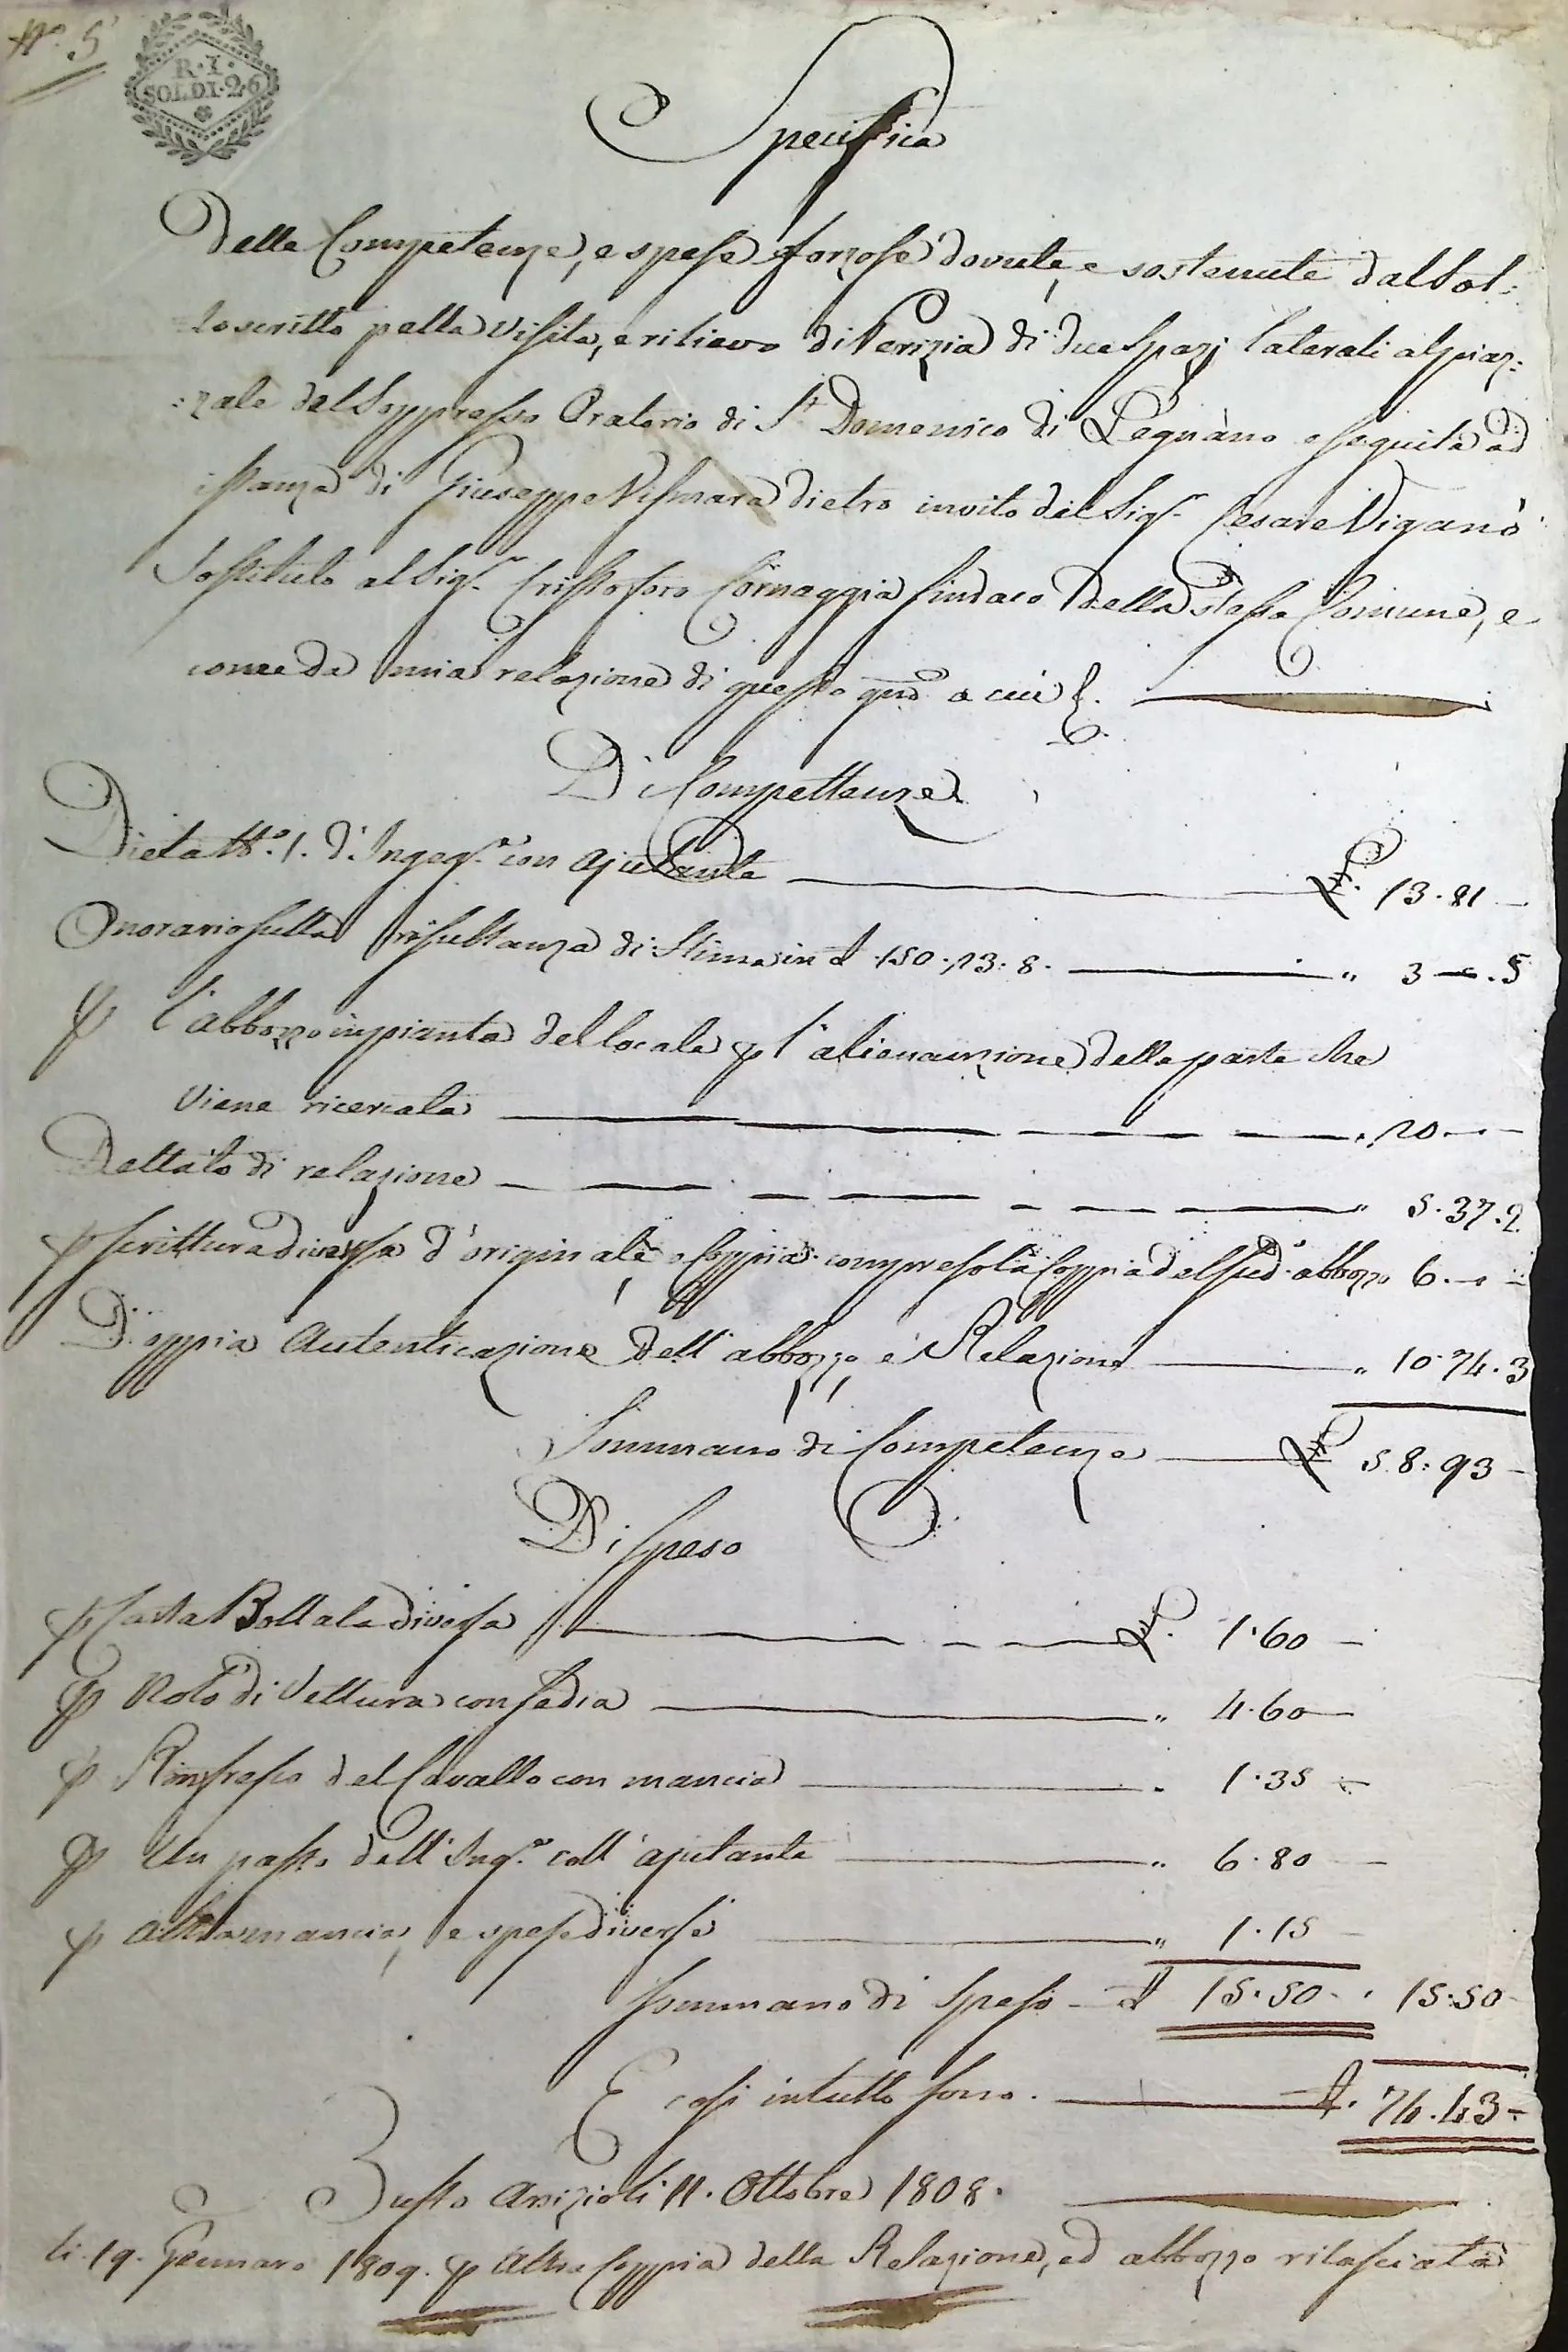 N.º 5
R. I.
SOLDI. 26
Specifica
Delle Competenze, e spese forzose dovute, e sostenute dal Sot:
:toscritto pella visita, e rilievo di Perizia di due Spazj laterali al piaz:
:zale del Soppresso Oratorio di S.t Domenico di Legnàno eseguita ad
istanza di Giuseppe Vismara dietro invito del Sig.r Cesare Viganò
Sostituto al Sig.r Cristoforo Cornaggia Sindaco della stessa Comune, e
come da mia relazione di questo a cui
Di Compettenze
Dieta N.º 1. d'Ingeg.e con Ajutante £. 13.81 —
Onorario sulla risultanza di Stima in £ 150.,13:8. „ 3 — . 5
p l'abbozzo in pianta del locale p l'alienazione della parte che
viene ricercata „ 20 — —
Dettato di relazione „ 5.37.2
p scrittura diversa d'originale e Coppia compresola Coppia del sud.º abbozzo 6. — —
Doppia Autenticazione dell'abbozzo, e Relazione „ 10.74.3
Sommano di Competenze £ 58:93 —
Di Spese
p Carta Bollata diversa £. 1.60 —
p Nolo di Vettura con sedia „ 4.60 —
p Rinfresco del Cavallo con mancia „ 1.35 —
p Un pasto dell'Ing.e coll'ajutante „ 6.80 —
p altra mancia, e spese diverse „ 1.15 —
Sommano di Spese £ 15.50 . 15.50
E così in tutto sono. £. 74.43 —
Busto Arsizio li 11. Ottobre 1808.
li. 19. Gennaro 1809. p Altra Coppia della Relazione, ed abbozzo rilasciata